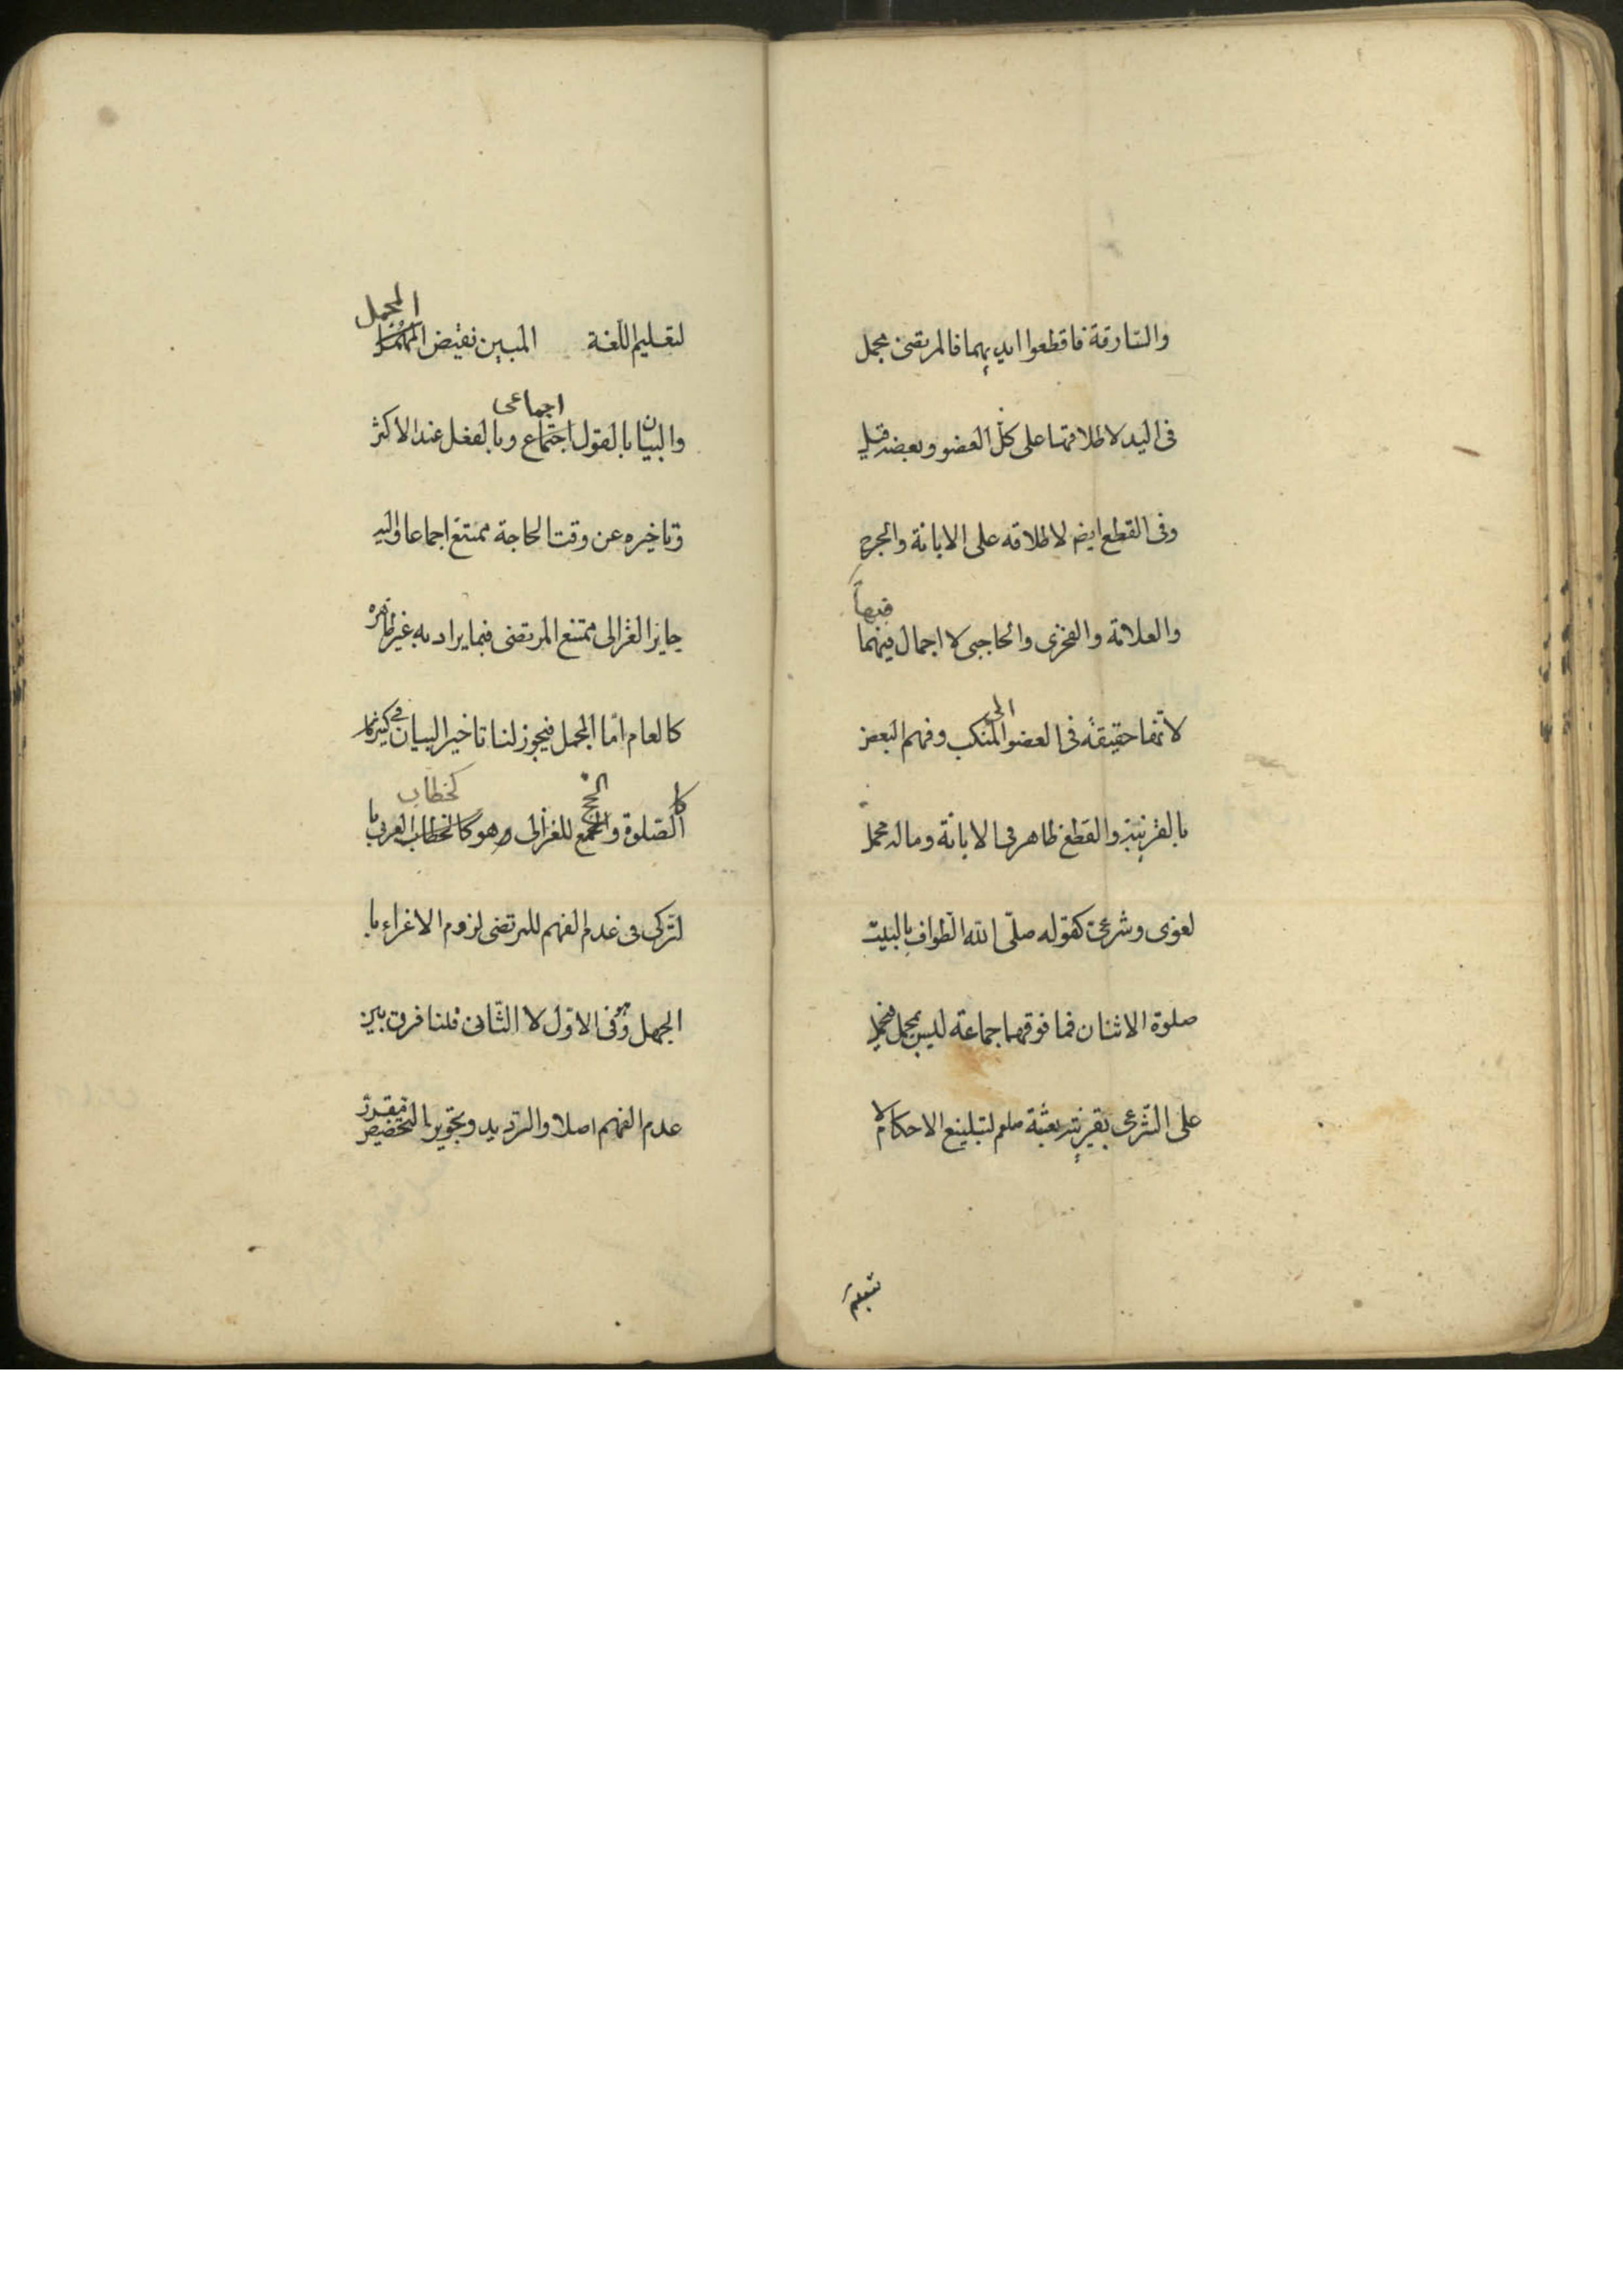 والسّارقة فاقطعوا ايديهما فالمرتضى مجمل
فى اليد لاطلاقها على كلّ العضو وبعضه قيل
وفى القطع ايضا لاطلاقه على الابانة والجرح
والعلامة والفخرى والحاجبى لا اجمال فيهما
فيها
لانها حقيقة فى العضو الى المنكب وفهم البعض
بالقرينة والقطع ظاهر فى الابانة وماله محمل
لغوى وشرعى كقوله صلّى الله الطواف بالبيت
صلوة الاثنان فما فوقهما جماعة ليس بمجمل فيحمل
على الشرعى بقرينة بعثة صلعم لتبليغ الاحكام لا
لتعليم اللّغة المبين نقيض
المجمل
والبيان بالقول اجتماع وبالفعل عند الاكثر
اجماعى
وتاخيره عن وقت الحاجة ممتنع اجماعا واليه
جايز الغزالى ممتنع المرتضى فيما يراد به غير ظاهره
كالعام امّا المجمل فيجوز لنا تاخير البيان فى
كالصّلوة والحج للغزالى وهو كالخطاب العربى با
كخطاب
لتركى فى عدم الفهم للمرتضى لزوم الاغراء با
الجهل وهو فى الاوّل لا الثّانى قلنا فرق بين
عدم الفهم اصلا والترديد وتجويز التخصيص